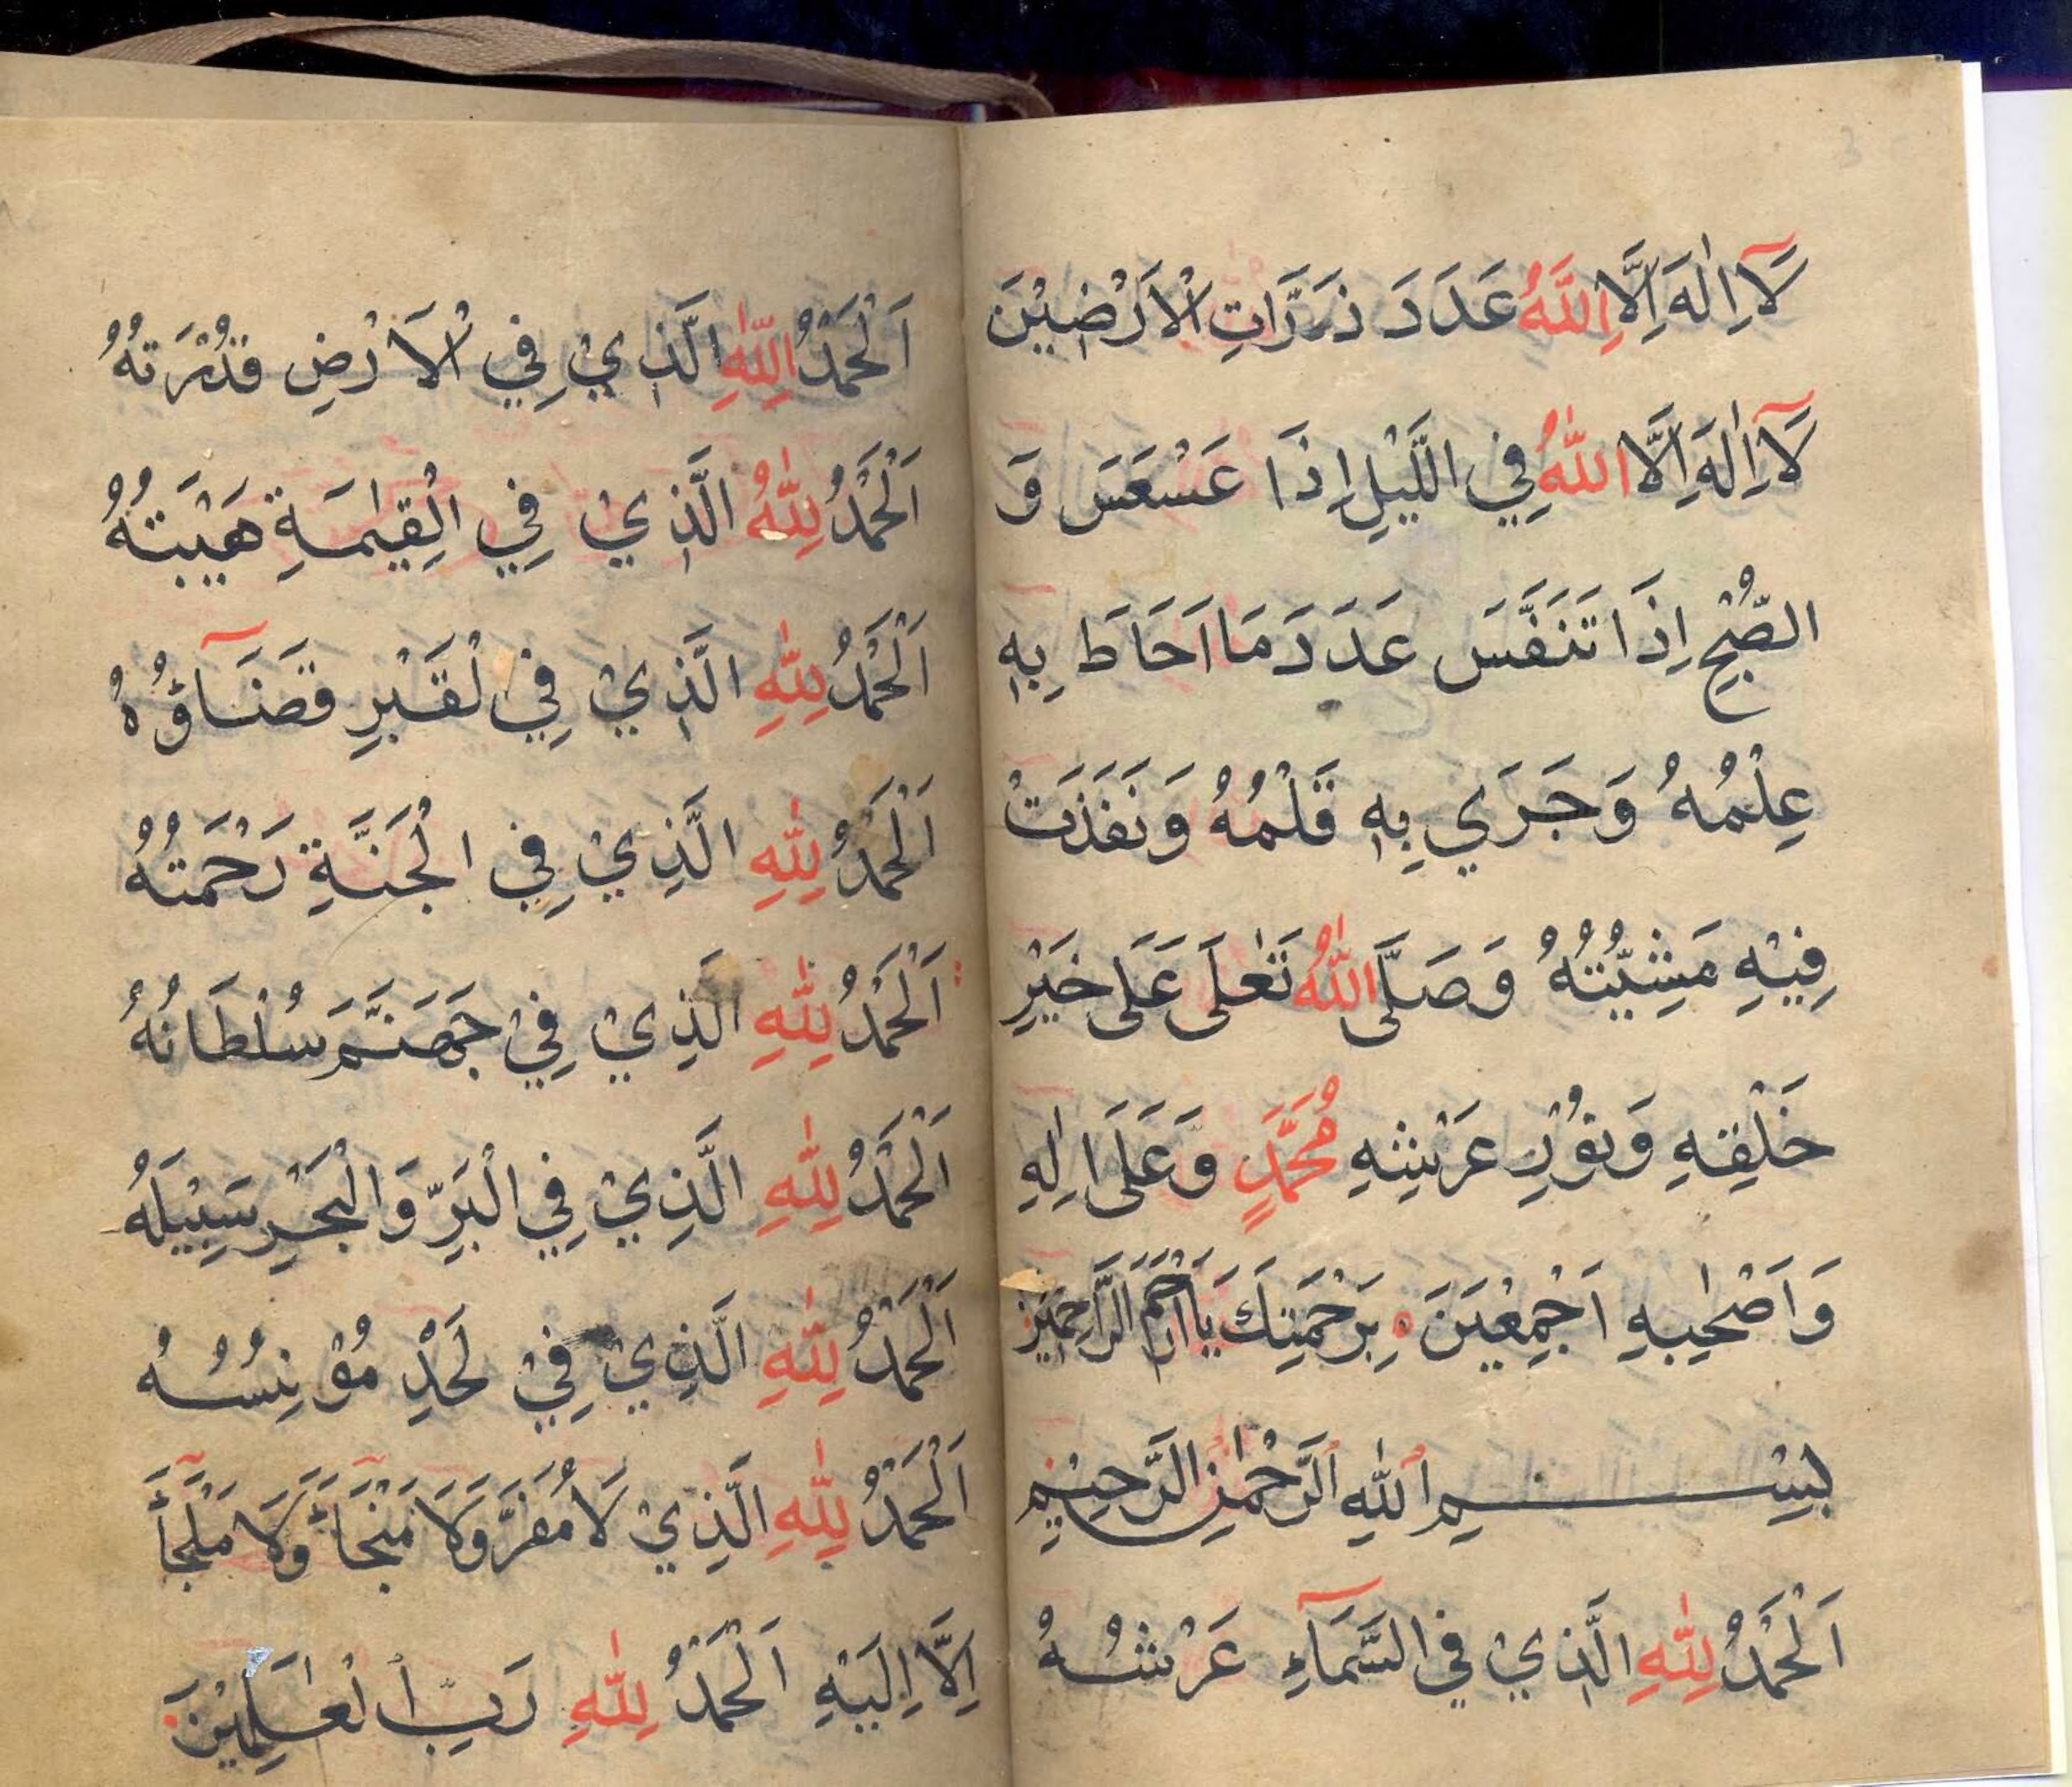 لَآ اِلٰهَ اِلَّا اللّٰهُ عَدَدَ ذَرَّاتِ الْاَرْضِيْنَ
لَآ اِلٰهَ اِلَّا اللّٰهُ فِي الَّيْلِ اِذَا عَسْعَسَ وَ
الصُّبْحِ اِذَا تَنَفَّسَ عَدَدَ مَا اَحَاطَ بِهٖ
عِلْمُهُ وَجَرَي بِهٖ قَلَمُهُ وَنَفَذَتْ
فِيْهِ مَشِيَّتُهُ وَصَلَّى اللّٰهُ تَعٰلَى عَلَى خَيْرِ
خَلْقِهٖ وَنُوْرِ عَرْشِهٖ مُحَمَّدٍ وَّعَلَى اٰلِهٖ
وَاَصْحٰبِهٖ اَجْمَعِيْنَ ه بِرَحْمَتِكَ يَا اَرْحَمَ الرَّاحِمِيْنَ
بِسْمِ اللّٰهِ الرَّحْمٰنِ الرَّحِيْمِ
اَلْحَمْدُ لِلّٰهِ الَّذِيْ فِي السَّمَآءِ عَرْشُهُ
اَلْحَمْدُ لِلّٰهِ الَّذِيْ فِي الْاَرْضِ قُدْرَتُهُ
اَلْحَمْدُ لِلّٰهِ الَّذِيْ فِي الْقِيٰمَةِ هَيْبَتُهُ
اَلْحَمْدُ لِلّٰهِ الَّذِيْ فِي الْقَبْرِ قَضَآؤُهُ
اَلْحَمْدُ لِلّٰهِ الَّذِيْ فِي الْجَنَّةِ رَحْمَتُهُ
اَلْحَمْدُ لِلّٰهِ الَّذِيْ فِيْ جَهَنَّمَ سُلْطَانُهُ
اَلْحَمْدُ لِلّٰهِ الَّذِيْ فِي الْبَرِّ وَالْبَحْرِ سَبِيْلَهُ
اَلْحَمْدُ لِلّٰهِ الَّذِيْ فِيْ لَحْدِ مُوْنِسُهُ
اَلْحَمْدُ لِلّٰهِ الَّذِيْ لَا مَفَرَّ وَلَا مَنْجَآءَ وَلَا مَلْجَأَ
اِلَّا اِلَيْهِ اَلْحَمْدُ لِلّٰهِ رَبِّ الْعٰلَمِيْنَ